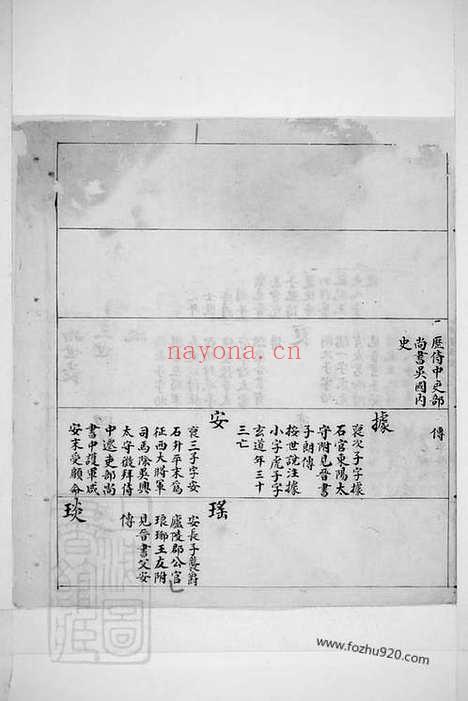 歷侍中吏部
尚書吳國內
史
傳
據
裒次子字據
石官東陽太
守附見晉書
子朗傳
按世說注據
小字虎子字
玄道年三十
三亡
安
裒三子字安
石升平末為
征西大將軍
司馬除吳興
太守徵拜侍
中遷吏部尚
書中護軍咸
安末受顧命
瑤
安長子襲爵
廬陵郡公官
琅琊王友附
見晉書父安
傳
琰
nayona.cn
www.fozhu920.com